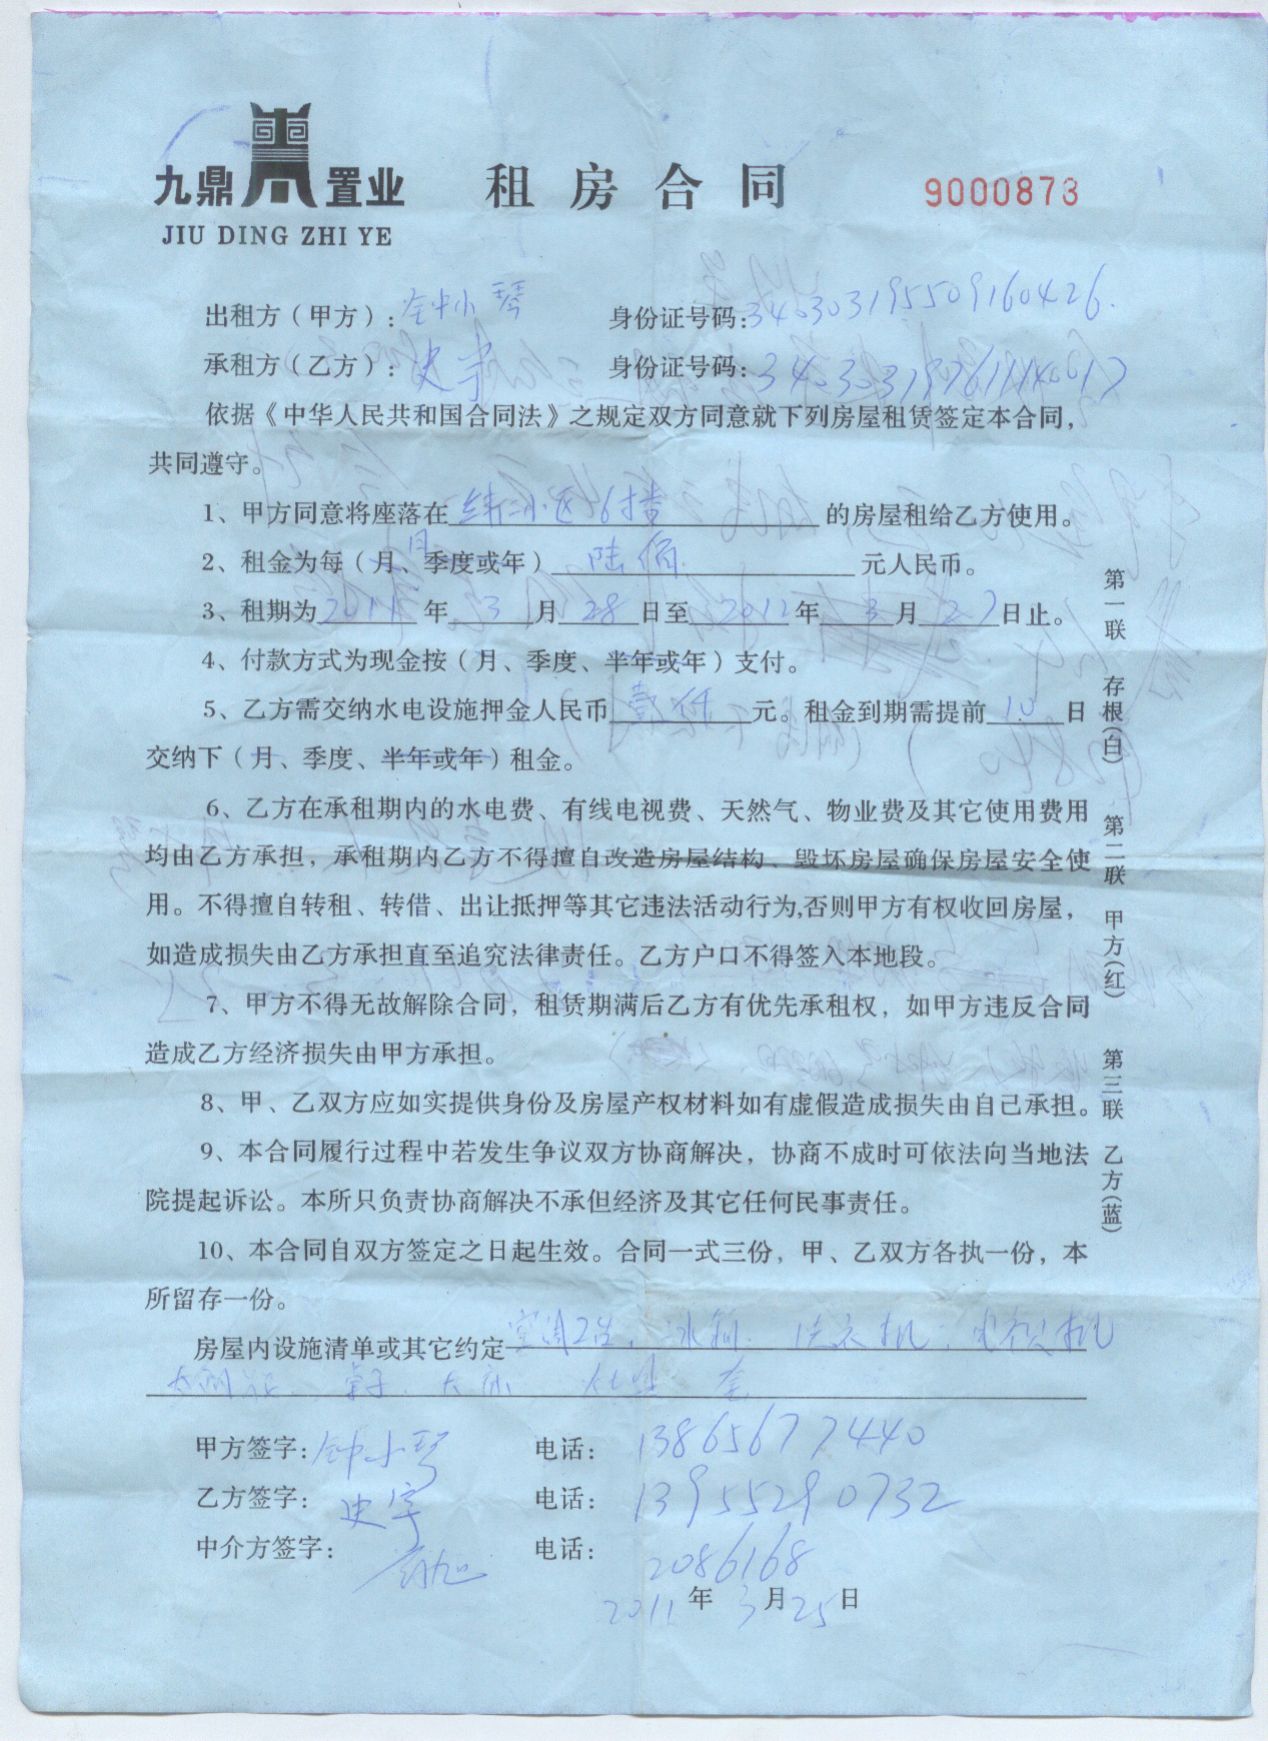 九鼎置业 租房合同 9000873
JIU DING ZHI YE
出租方(甲方): 钟小琴 身份证号码: 340303195509160426.
承租方(乙方): 史宇 身份证号码: 340303197611140617
依据《中华人民共和国合同法》之规定双方同意就下列房屋租赁签定本合同，
共同遵守。
1、甲方同意将座落在 小区 6 的房屋租给乙方使用。
2、租金为每(月、季度或年) 月 陆佰 元人民币。
3、租期为 2011 年 3 月 28 日至 2012 年 3 月 27 日止。
4、付款方式为现金按(月、季度、半年或年)支付。
5、乙方需交纳水电设施押金人民币 壹仟 元。租金到期需提前 10 日
交纳下(月、季度、半年或年)租金。
6、乙方在承租期内的水电费、有线电视费、天然气、物业费及其它使用费用
均由乙方承担，承租期内乙方不得擅自改造房屋结构、毁坏房屋确保房屋安全使
用。不得擅自转租、转借、出让抵押等其它违法活动行为,否则甲方有权收回房屋，
如造成损失由乙方承担直至追究法律责任。乙方户口不得签入本地段。
7、甲方不得无故解除合同，租赁期满后乙方有优先承租权，如甲方违反合同
造成乙方经济损失由甲方承担。
8、甲、乙双方应如实提供身份及房屋产权材料如有虚假造成损失由自己承担。
9、本合同履行过程中若发生争议双方协商解决，协商不成时可依法向当地法
院提起诉讼。本所只负责协商解决不承但经济及其它任何民事责任。
10、本合同自双方签定之日起生效。合同一式三份，甲、乙双方各执一份，本
所留存一份。
房屋内设施清单或其它约定 空调2台, 冰箱. 洗衣机, 电视机
桌子. 大床
甲方签字: 钟小琴 电话: 13865677440
乙方签字: 史宇 电话: 13955290732
中介方签字: 电话: 2086168
2011 年 3 月 25 日
第一联 存根(白) 第二联 甲方(红) 第三联 乙方(蓝)